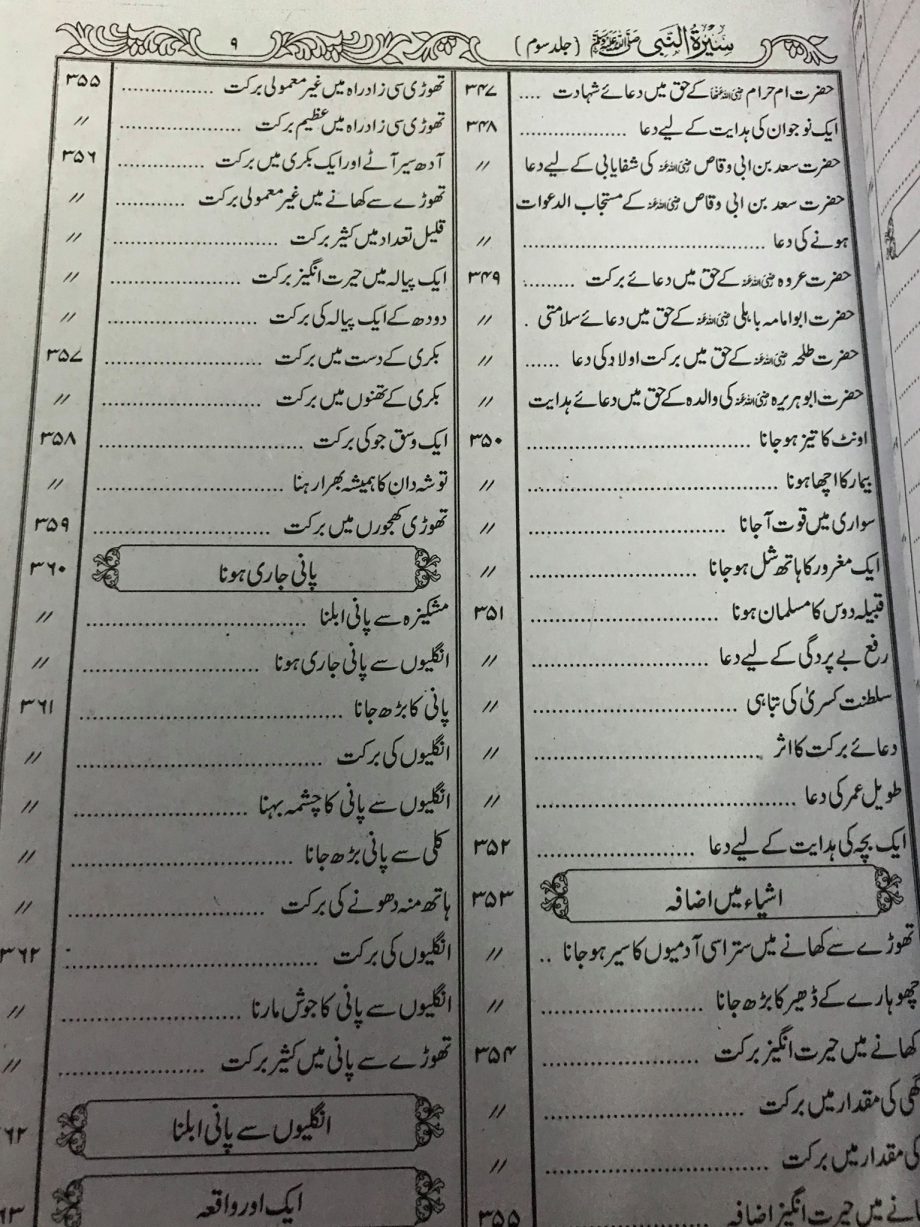 سیرۃ النبی ﷺ (جلد سوم) ۹
حضرت ام حرام رضی اللہ عنہا کے حق میں دعائے شہادت .... ۳۴۷
ایک نوجوان کی ہدایت کے لیے دعا .................. ۳۴۸
حضرت سعد بن ابی وقاص رضی اللہ عنہ کی شفایابی کے لیے دعا 〃
حضرت سعد بن ابی وقاص رضی اللہ عنہ کے مستجاب الدعوات
ہونے کی دعا .................. 〃
حضرت عروہ رضی اللہ عنہ کے حق میں دعائے برکت ......... ۳۴۹
حضرت ابوامامہ باہلی رضی اللہ عنہ کے حق میں دعائے سلامتی . 〃
حضرت طلحہ رضی اللہ عنہ کے حق میں برکت اولاد کی دعا ...... 〃
حضرت ابوہریرہ رضی اللہ عنہ کی والدہ کے حق میں دعائے ہدایت 〃
اونٹ کا تیز ہو جانا .................. ۳۵۰
بیمار کا اچھا ہونا .................. 〃
سواری میں قوت آ جانا .................. 〃
ایک مغرور کا ہاتھ شل ہو جانا .................. 〃
قبیلہ دوس کا مسلمان ہونا .................. ۳۵۱
رفع بے پردگی کے لیے دعا .................. 〃
سلطنت کسریٰ کی تباہی .................. 〃
دعائے برکت کا اثر .................. 〃
طویل عمر کی دعا .................. 〃
ایک بچہ کی ہدایت کے لیے دعا .................. ۳۵۲
اشیاء میں اضافہ ۳۵۳
تھوڑے سے کھانے میں ستر اسی آدمیوں کا سیر ہو جانا .. 〃
چھوہارے کے ڈھیر کا بڑھ جانا .................. 〃
کھانے میں حیرت انگیز برکت .................. ۳۵۴
گھی کی مقدار میں برکت .................. 〃
کی مقدار میں برکت .................. 〃
میں حیرت انگیز اضافہ .................. ۳۵۵
تھوڑی سی زادراہ میں غیر معمولی برکت .................. ۳۵۵
تھوڑی سی زادراہ میں عظیم برکت .................. 〃
آدھ سیر آٹے اور ایک بکری میں برکت .................. ۳۵۶
تھوڑے سے کھانے میں غیر معمولی برکت .................. 〃
قلیل تعداد میں کثیر برکت .................. 〃
ایک پیالہ میں حیرت انگیز برکت .................. 〃
دودھ کے ایک پیالہ کی برکت .................. 〃
بکری کے دست میں برکت .................. ۳۵۷
بکری کے تھنوں میں برکت .................. 〃
ایک وسق جو کی برکت .................. ۳۵۸
توشہ دان کا ہمیشہ بھرا رہنا .................. 〃
تھوڑی کھجوروں میں برکت .................. ۳۵۹
پانی جاری ہونا ۳۶۰
مشکیزہ سے پانی ابلنا .................. 〃
انگلیوں سے پانی جاری ہونا .................. 〃
پانی کا بڑھ جانا .................. ۳۶۱
انگلیوں کی برکت .................. 〃
انگلیوں سے پانی کا چشمہ بہنا .................. 〃
کلی سے پانی بڑھ جانا .................. 〃
ہاتھ منہ دھونے کی برکت .................. 〃
انگلیوں کی برکت .................. ۳۶۲
انگلیوں سے پانی کا جوش مارنا .................. 〃
تھوڑے سے پانی میں کثیر برکت .................. 〃
انگلیوں سے پانی ابلنا ۶۲
ایک اور واقعہ ۶۳